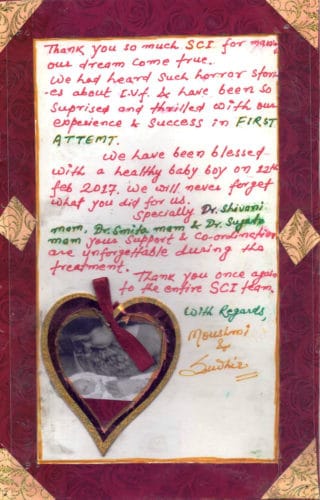 Thank you so much SCI for making
our dream come true.
We had heard such horror stori-
-es about I.V.f. & have been so
suprised and thrilled with our
experience & success in FIRST
ATTEMT.
We have been blessed
with a healthy baby boy on 12th
feb 2017. we will never forget
what you did for us.
Specially Dr. Shivani
mam, Dr. Smita mam & Dr. Sujata
mam your support & co-ordination
are unforgettable during the
treatment.
Thank you once again
to the entire SCI team.
With Regards,
Moushmi
&
Sudhir